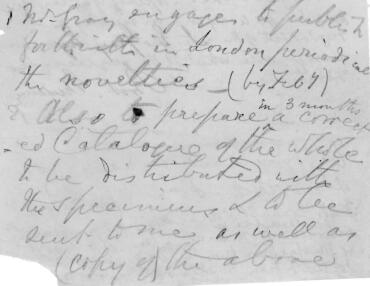 1 Mr Gray engages to publish
forthwith in London periodical
the novelties — (by Feby)
2 Also to prepare in 3 months a correct
-ed Catalogue of the whole
to be distributed with
the specimens & to be
sent to me as well as
(copy of) the above